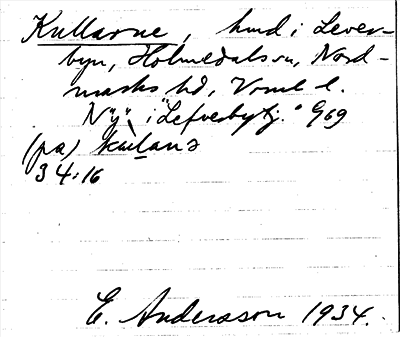 Kullarne, hmd i Lever-
byn, Holmedals sn, Nord-
marks hd, Vrml l.
"Ny" i "Lefverbytj." G69
(pa) kulana
34:16
E. Andersson 1934.